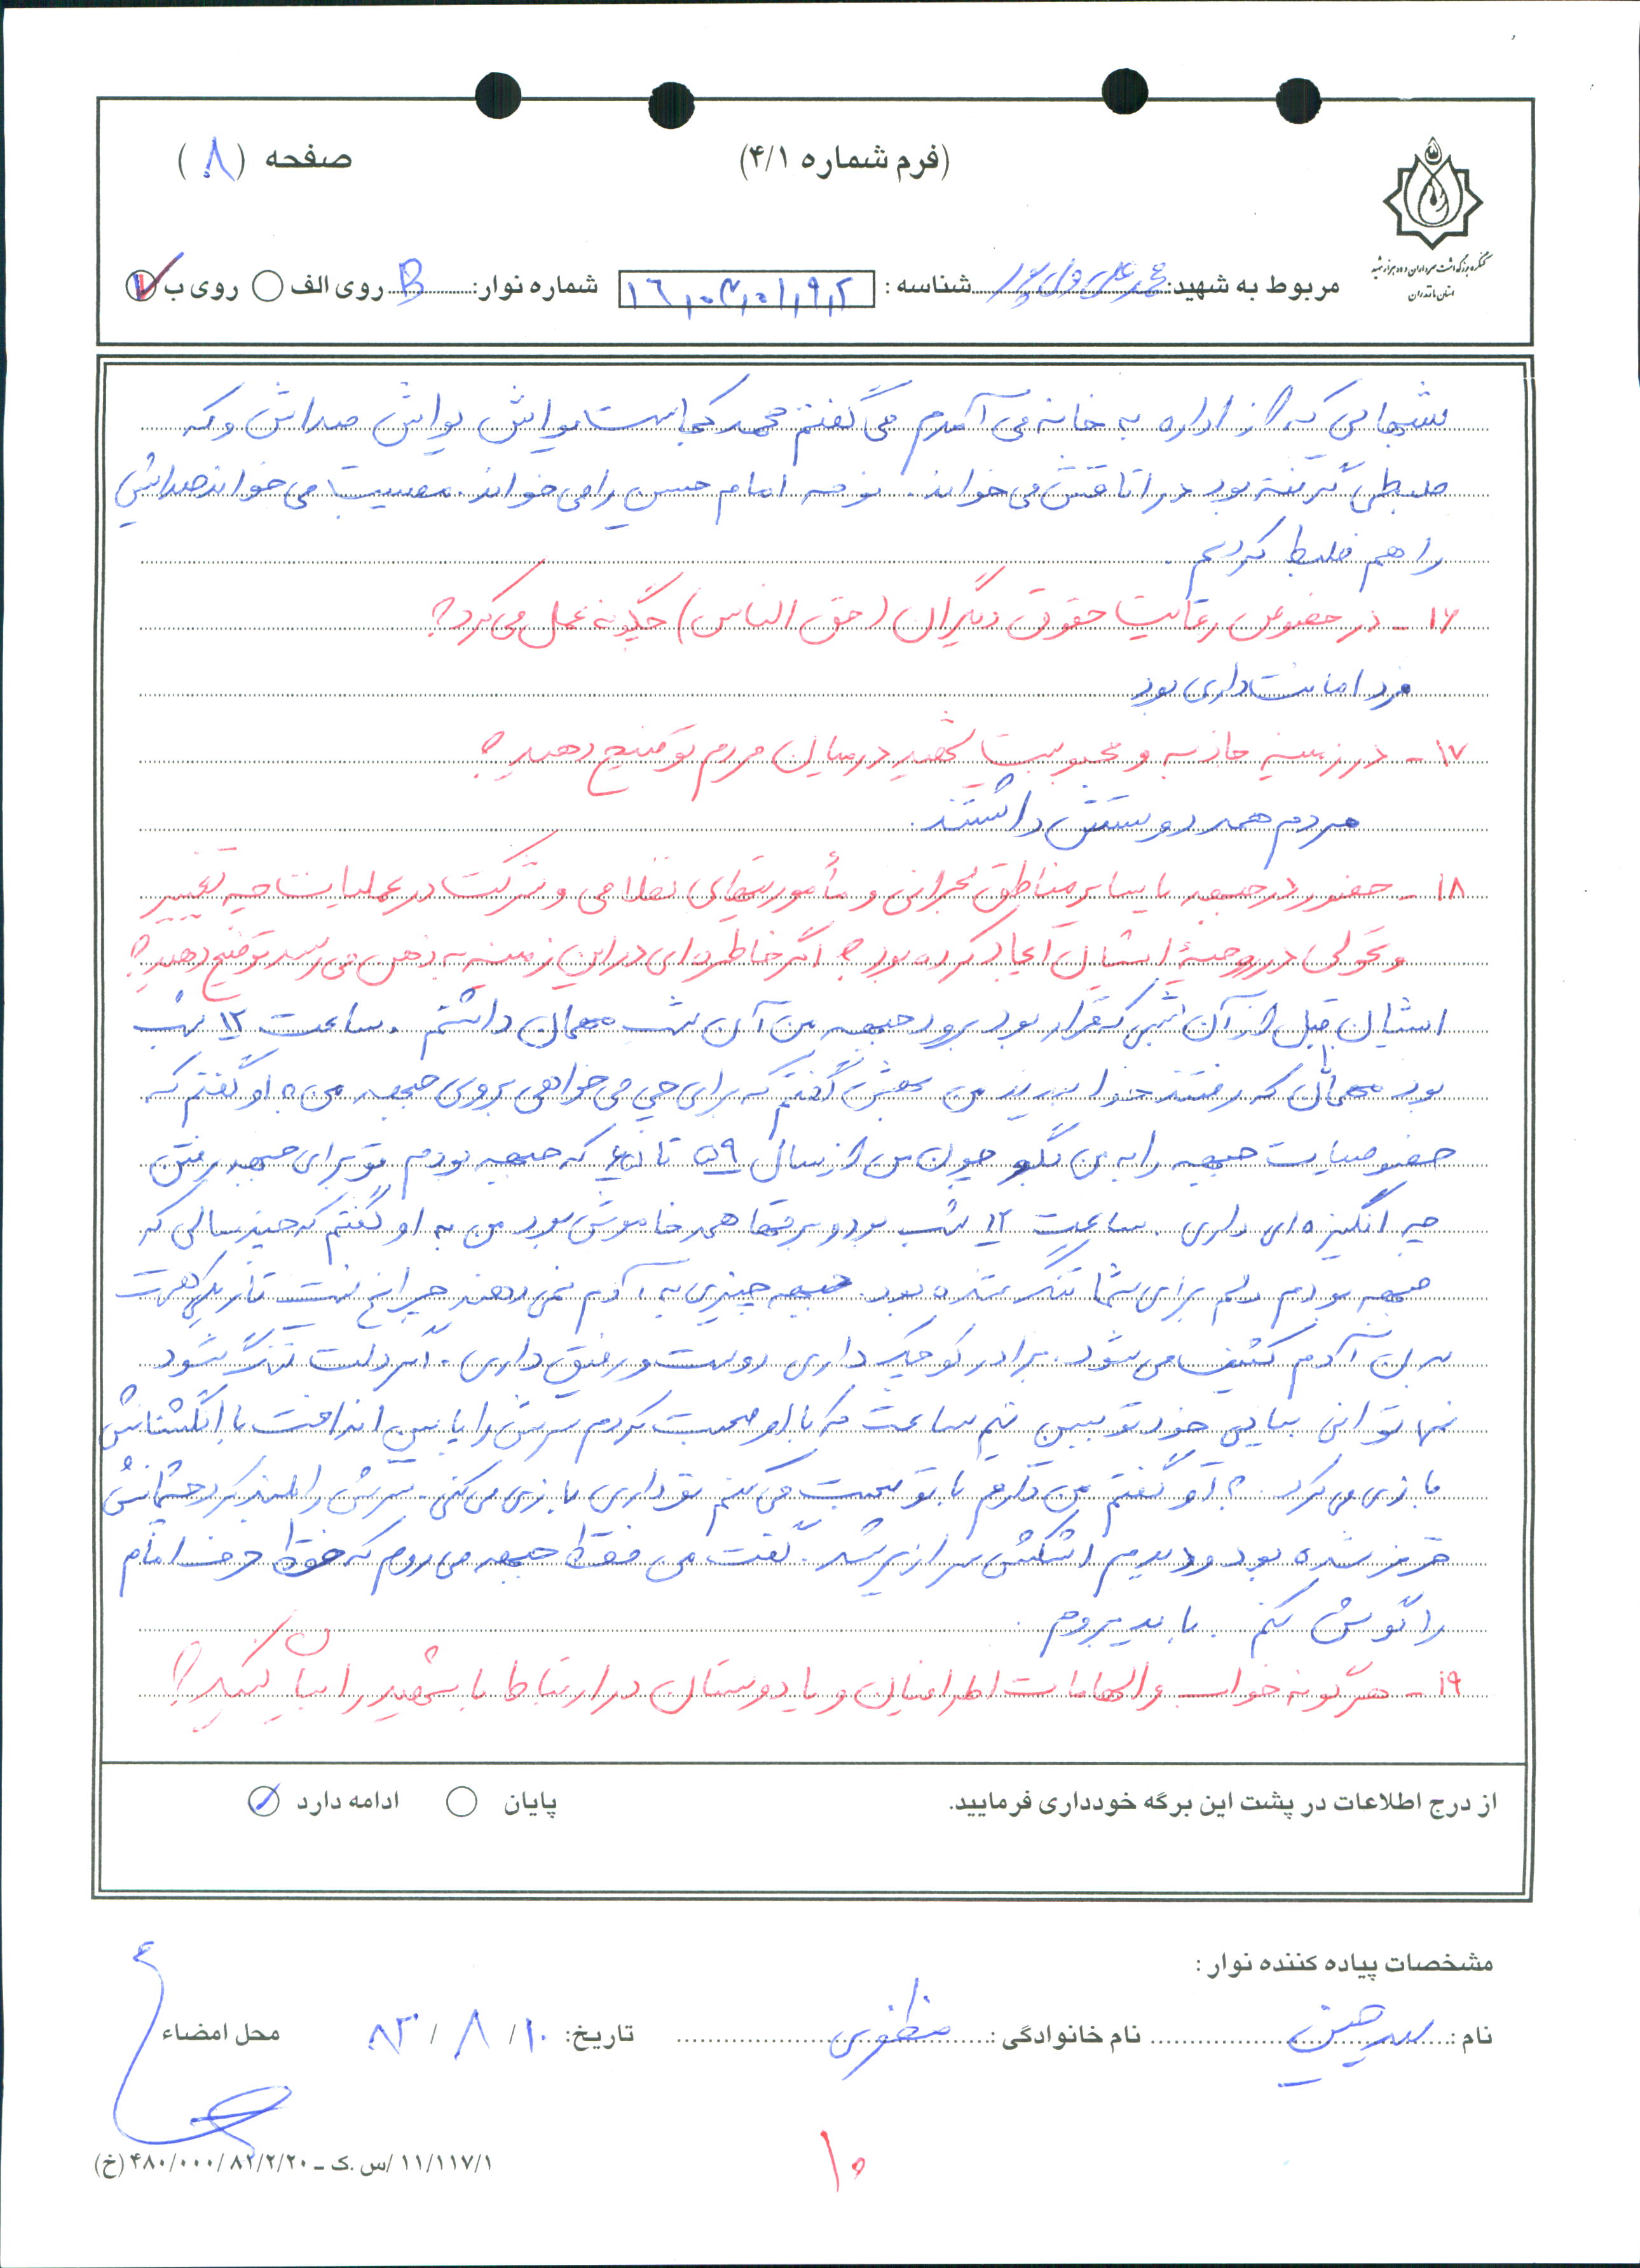 (فرم شماره ۴/۱)
صفحه (۸)
کنگره بزرگداشت سرداران و ده هزار شهید
استان مازندران
مربوط به شهید: محمد علی ولی پور شناسه: ۱۶۰۳۰۱۹۲ شماره نوار: B روی الف روی ب
شبهایی که از اداره به خانه می آمدم می گفتم محمد کجاست یواش یواش صداش و که
ضبطی گرفته بود در اتاقش می خواند. نوحه امام حسین را می خواند. مصیبت می خواند صدایش
را هم ضبط کردیم.
۱۶- در خصوص رعایت حقوق دیگران (حق الناس) چگونه عمل می کرد؟
مرد امانت داری بود
۱۷- در زمینه جاذبه و محبوبیت شهید در میان مردم توضیح دهید؟
مردم همه دوستش داشتند.
۱۸- حضور در جبهه یا سایر مناطق بحرانی و مأموریتهای نظامی و شرکت در عملیات چه تغییر
و تحولی در روحیۀ ایشان ایجاد کرده بود؟ اگر خاطره ای در این زمینه به ذهن می رسد توضیح دهید؟
ایشان قبل از آن شبی که قرار بود برود جبهه من آن شب مهمان داشتم. ساعت ۱۲ شب
بود مهمان که رفتند من بهش گفتم که برای چی می خواهی بروی جبهه او گفتم که
خصوصیات جبهه را به من بگو چون من از سال ۵۹ تا که جبهه بودم تو برای جبهه رفتن
چه انگیزه ای داری. ساعت ۱۲ شب بود و برقها همه خاموش بود من به او گفتم که چند سالی که
جبهه بودم دلم برای شما تنگ شده بود. جبهه چیزی به آدم نمی دهند چراغ نیست تاریکی هست
بدن آدم کثیف می شود. برادر کوچک داری دوست و رفیق داری. اگر دلت تنگ شود
نمی توانی بیایی خود تو ببین نیم ساعت که با او صحبت کردم سرش را پایین انداخت با انگشتانش
بازی می کرد. به او گفتم من دارم با تو صحبت می کنم تو داری بازی می کنی. سرش را بلند کرد چشمانش
قرمز شده بود و دیدم اشکش سرازیر شد. گفت من فقط جبهه می روم که فقط حرف امام
را گوش کنم. باید بروم.
۱۹- هرگونه خواب و الهامات اطرافیان و یا دوستان در ارتباط با شهید را بیان کنید؟
از درج اطلاعات در پشت این برگه خودداری فرمایید. پایان ادامه دارد
مشخصات پیاده کننده نوار:
نام: سید حسین نام خانوادگی: مظفری تاریخ: ۱۰/ ۸/ ۸۳ محل امضاء
۱۰
۱۱/۱۱۷/۱ /س.ک – ۴۸۰/۰۰۰/۸۲/۲/۲۰ (خ)